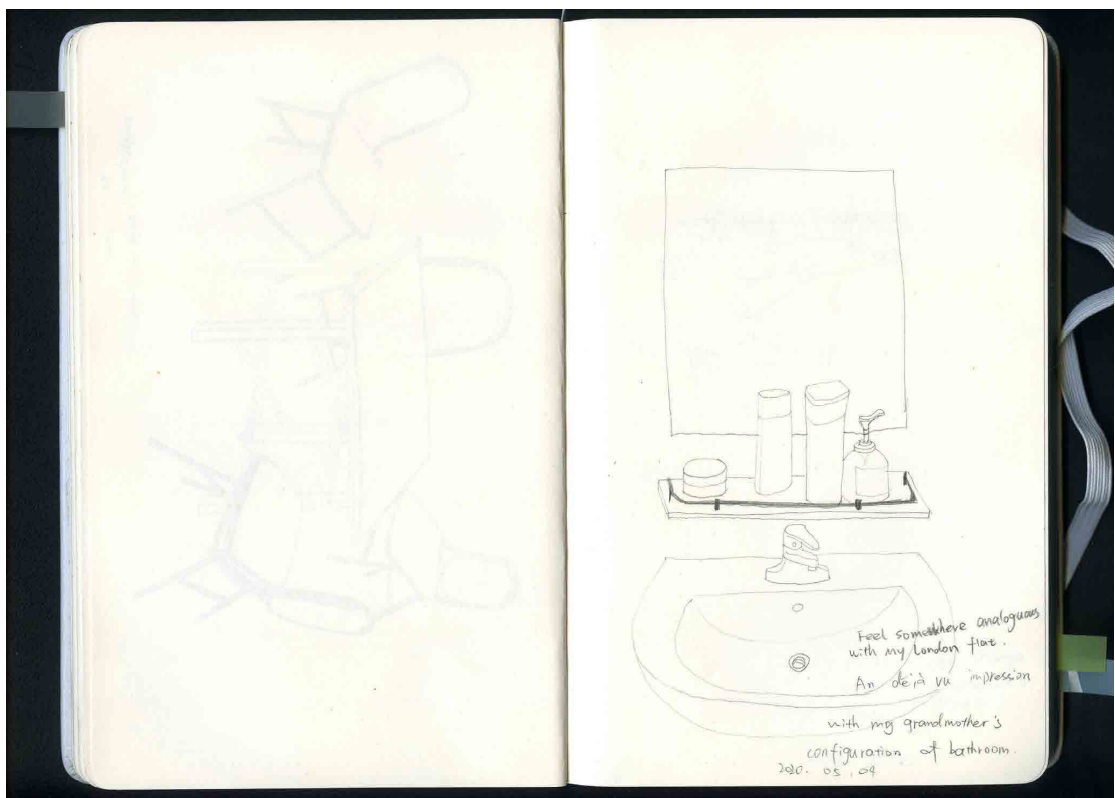 Feel somewhere analoguous
with my London flat.
An déjà vu impression
with my grandmother's
configuration of bathroom.
2020. 05. 04